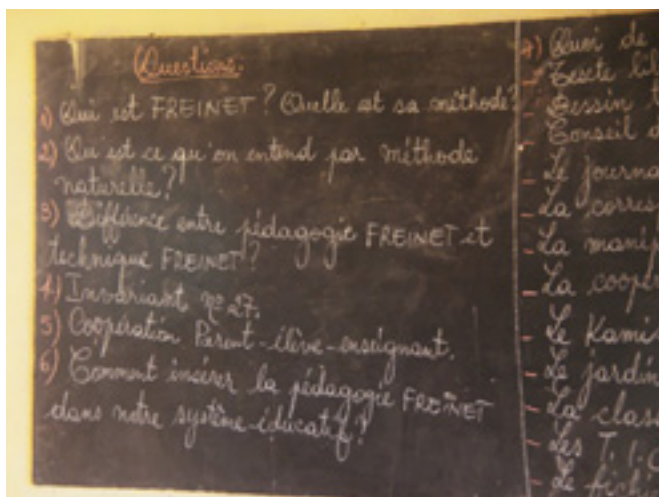 Questions:
1) Qui est FREINET? Quelle est sa méthode?
2) Qu'est ce qu'on entend par méthode
naturelle?
3) Différence entre pédagogie FREINET et
technique FREINET?
4) Invariant n° 27.
5) Coopération Parent-élève-enseignant.
6) Comment insérer la pédagogie FREINET
dans notre système éducatif?
7) Quoi de
- Texte lib
- Dessin
- Conseil d
- Le journa
- La corres
- La manip
- La coopér
- Le Kami
- Le jardin
- La class
- Les T.I.C
- Le fichi